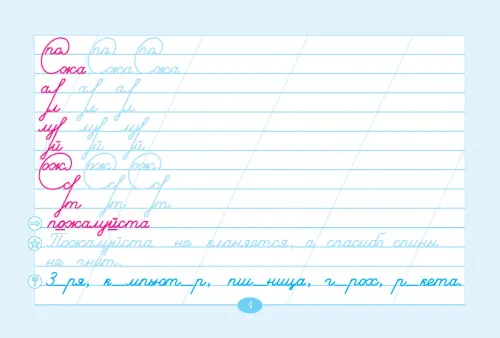 по по по
жа жа жа
ал ал ал
л л л
луй луй луй
й й й
ож ож ож
с с с
т т т
пожалуйста
Пожалуйста не кланяется, а спасибо спины
не гнёт.
З_ря, к_мпьют_р, пш_ница, г_рох, р_кета.
4